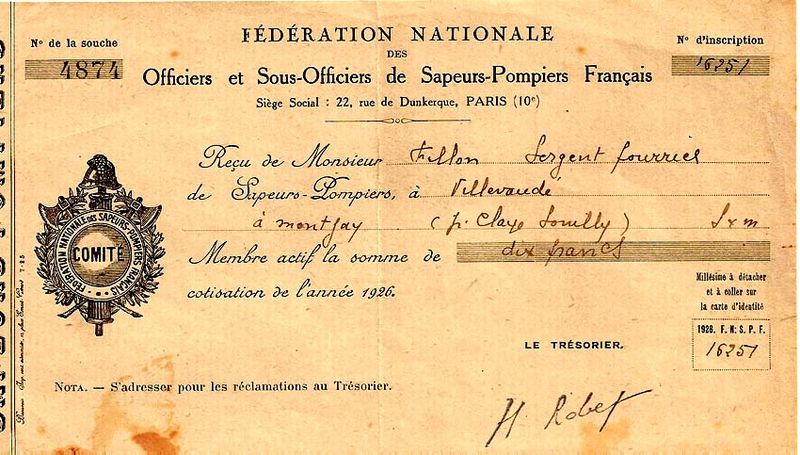 FÉDÉRATION NATIONALE
DES
Officiers et Sous-Officiers de Sapeurs-Pompiers Français
Siège Social : 22, rue de Dunkerque, PARIS (10e)
No de la souche
4874
No d'inscription
16251
Reçu de Monsieur Fillon Sergent fourrier
de Sapeurs-Pompiers, à Villevaudé
à Montjay (p. Claye Souilly) S &amp; M
Membre actif la somme de dix francs
cotisation de l'année 1926.
FÉDÉRATION NATIONALE DES SAPEURS-POMPIERS FRANÇAIS
COMITÉ
Millésime à détacher
et à coller sur
la carte d'identité
1926. F. N. S. P. F.
16251
LE TRÉSORIER.
NOTA. — S'adresser pour les réclamations au Trésorier.
H. Robet